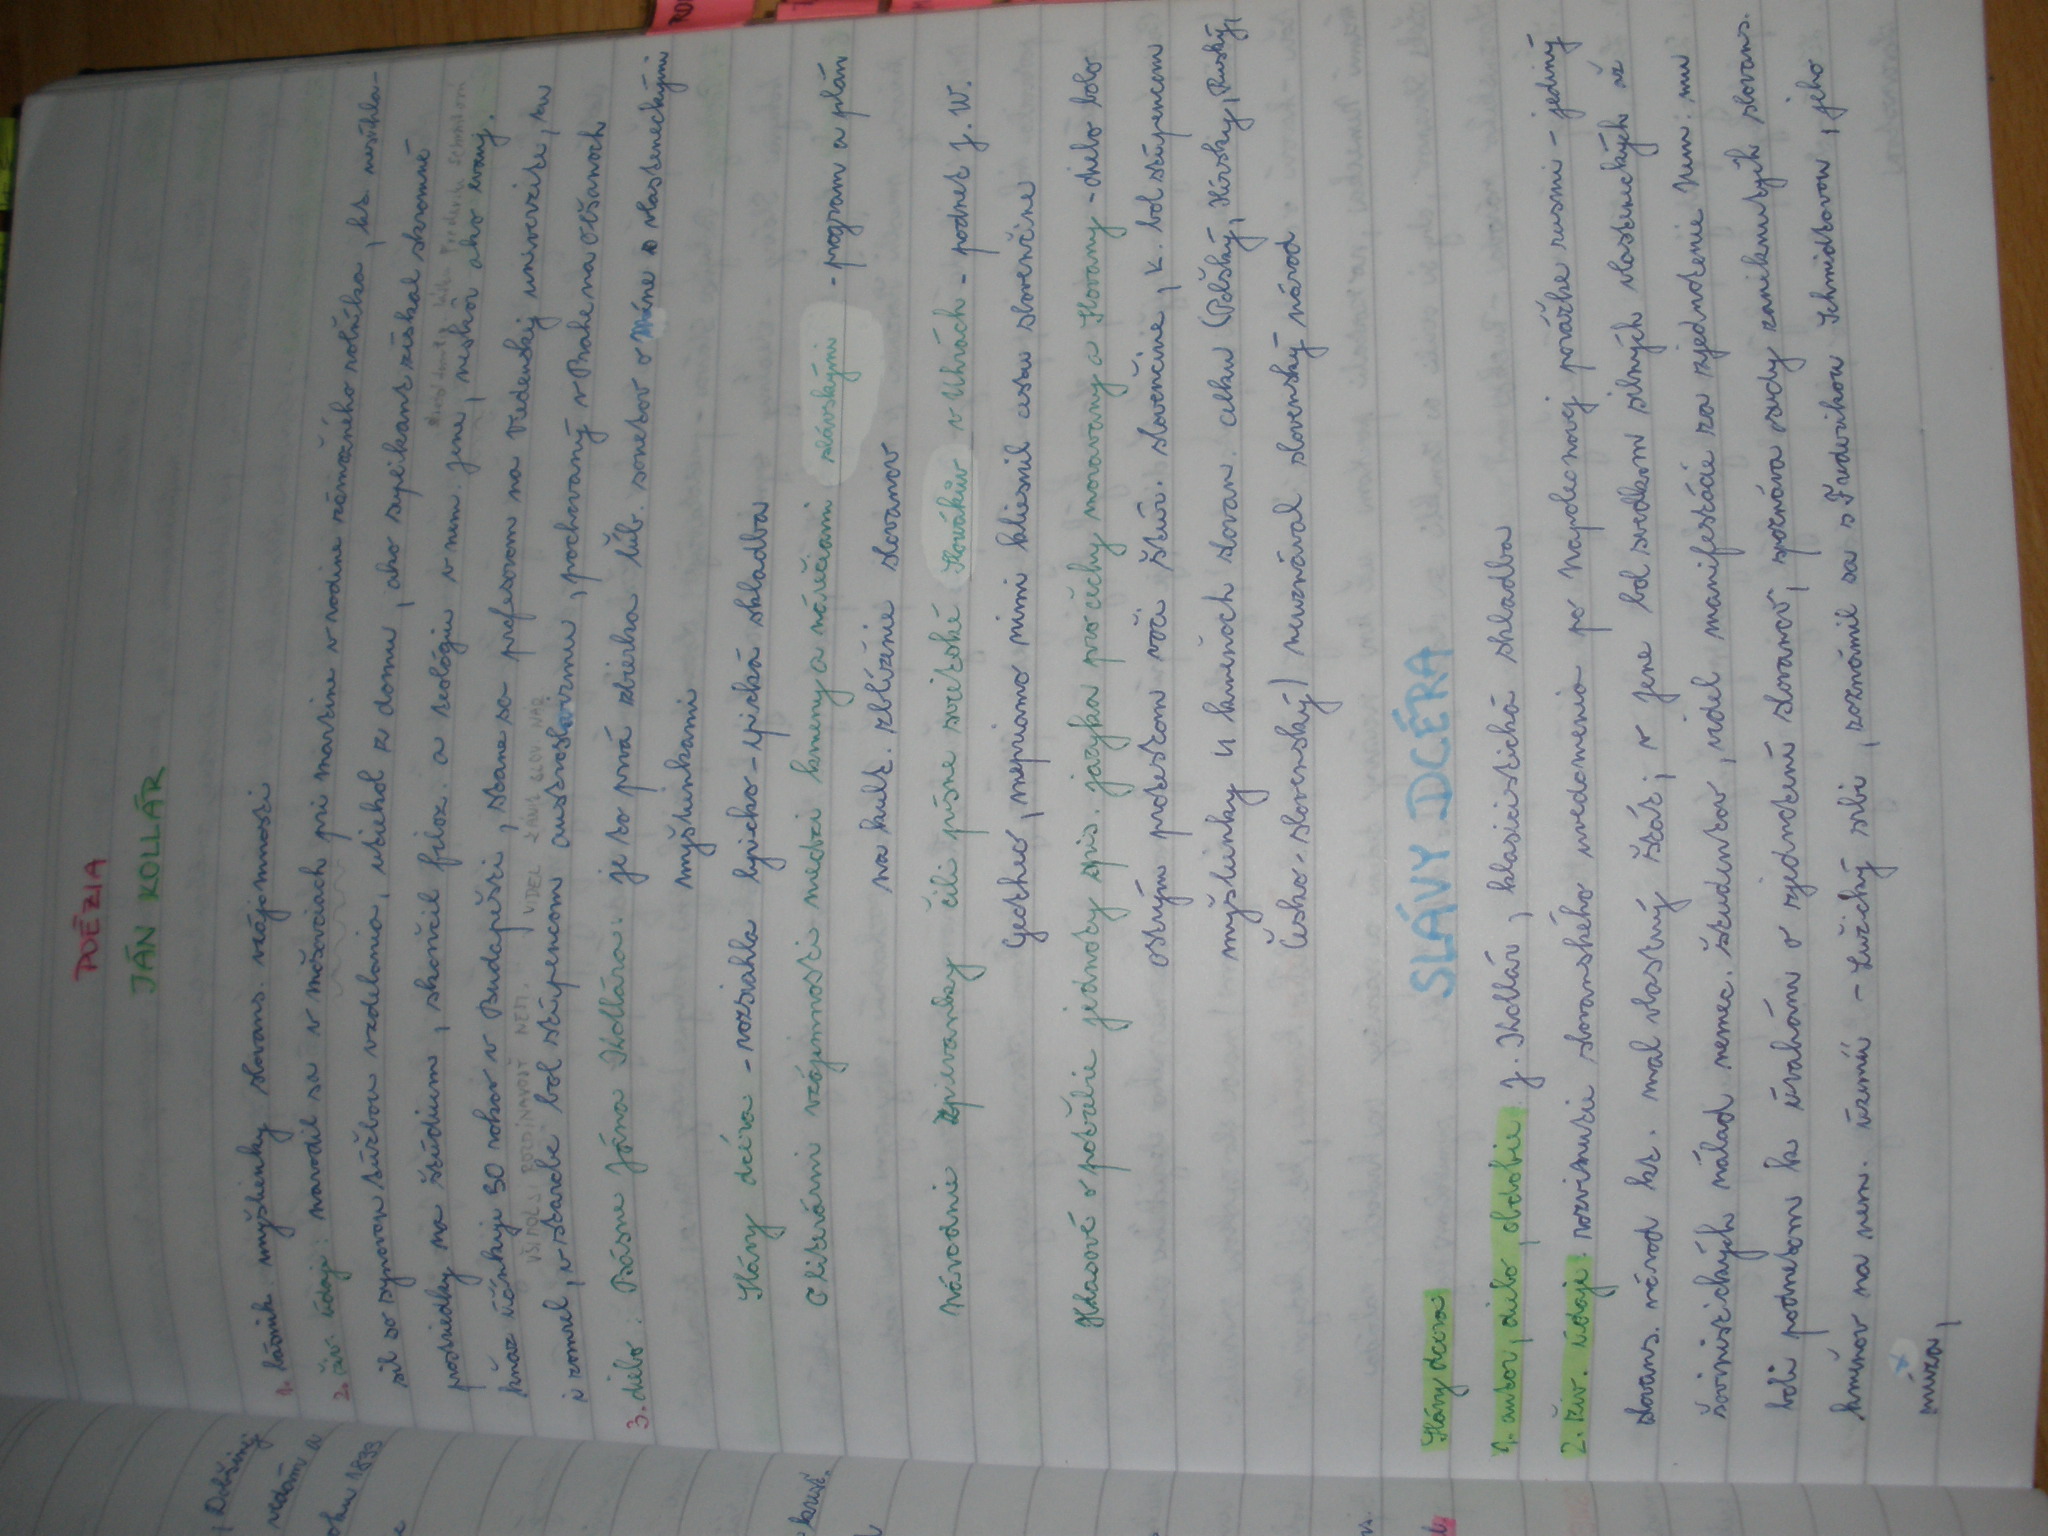 POÉZIA
JÁN KOLLÁR
1. básnik myšlienky slovans. vzájomnosti
2. živ. údaje: narodil sa v Mošovciach pri Martine v rodine zámožného roľníka, kt. nesúhla-
sil so synovou túžbou vzdelania, utiekol z domu, ako suplikant získal skromné
prostriedky na štúdium, skončil filoz. a teológiu v nem. Jene, neskôr ako evanj.
kňaz účinkuje 30 rokov v Budapešti, stane sa profesorom na Viedenskej univerzite, tu
VŠIMOL SI ROZPÍNAVOSŤ NEM. VIDEL ZÁNIK SLOV. NÁR.
i zomrel, v starobe bol stúpencom austroslavizmu, pochovaný v Prahe na Olšanoch
3. dielo: Básne Jána Kollára: je to prvá zbierka ľúb. sonetov o Míne s vlasteneckými
myšlienkami
Slávy dcéra - rozsiahla lyricko-epická skladba
O literárni vzájemnosti mezi kmeny a nářečími slávskými - program a plán
na kult. zblíženie Slovanov
Národnie Zpievanky čili písne světské Slovákův v Uhrách - podnet J. W.
Goetheo, nepriamo nimi kliesnil cestu slovenčine
Hlasové o potřebě jednoty spis. jazyka pro Čechy, Moravany a Slovany - dielo bolo
ostrým protestom voči štúr. slovenčine, K. bol stúpencom
myšlienky 4 kmeňoch slovan. celku (Poľský, Ilýrsky, Ruský,
Česko-slovenský) neuznával slovenský národ
SLÁVY DCÉRA
Slávy dcéra
1. autor, dielo, obdobie: J. Kollár, klasicistická skladba
2. živ. údaje: rozvinutie slovanského uvedomenia po Napoleonovej porážke rusmi - jediný
slovans. národ kt. mal vlastný štát; v Jene bol svedkom silných vlasteneckých až
šovinistických nálad nemec. študentov, videl manifestácie za zjednotenie Nem. mu
boli podnetom k úvahám o zjednotení Slovanov, spoznáva osudy zaniknutých slovans.
kmeňov na nem. území - Lužický srbi, zoznámil sa s Frederikou Schmidtovou, jeho
múza,